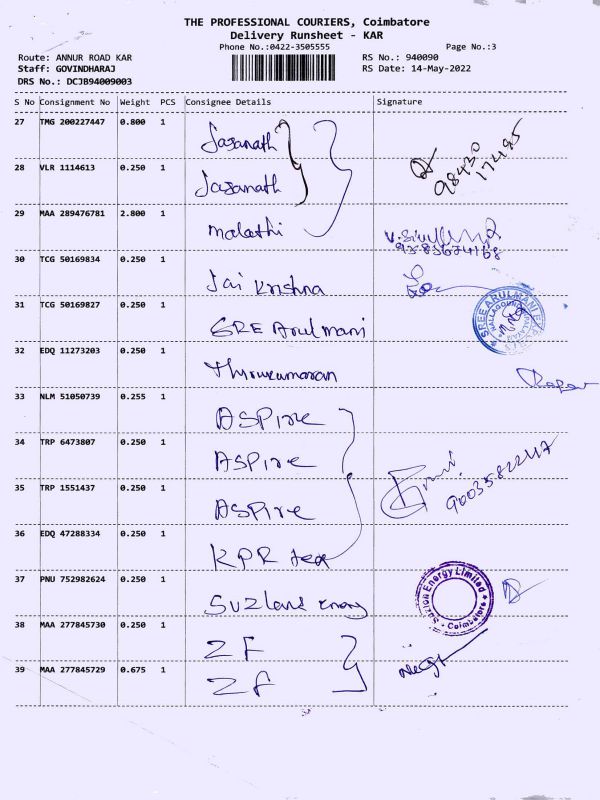 THE PROFESSIONAL COURIERS, Coimbatore
Delivery Runsheet - KAR
Phone No.:0422-3505555 Page No.:3
Route: ANNUR ROAD KAR RS No.: 940090
Staff: GOVINDHARAJ RS Date: 14-May-2022
DRS No.: DCJB94009003
S No Consignment No Weight PCS Consignee Details Signature
27 TMG 200227447 0.800 1 Jasanath
98430
17495
28 VLR 1114613 0.250 1 Jasanath
29 MAA 289476781 2.800 1 malathi
30 TCG 50169834 0.250 1 Jai Krishna
31 TCG 50169827 0.250 1 SRE Arulmani
SREE ARULMANI
32 EDQ 11273203 0.250 1 Thirukumaran
33 NLM 51050739 0.255 1 ASPire
34 TRP 6473807 0.250 1 ASPire
35 TRP 1551437 0.250 1 ASPire
36 EDQ 47288334 0.250 1 KPR tex
37 PNU 752982624 0.250 1 Suzland Energy
Suzlon Energy Limited
Coimbatore
38 MAA 277845730 0.250 1 ZF
39 MAA 277845729 0.675 1 ZF